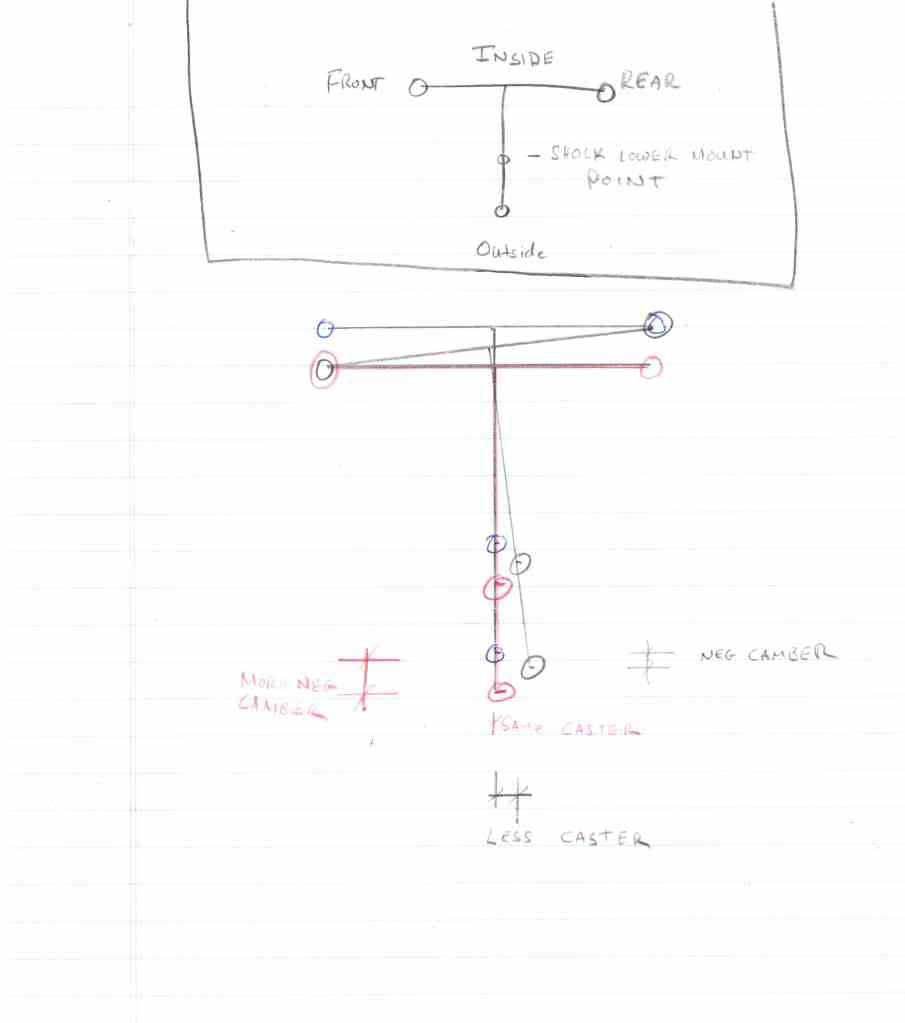 INSIDE
FRONT
REAR
- SHOCK LOWER MOUNT
POINT
Outside
NEG CAMBER
MORE NEG
CAMBER
SAME CASTER
LESS CASTER